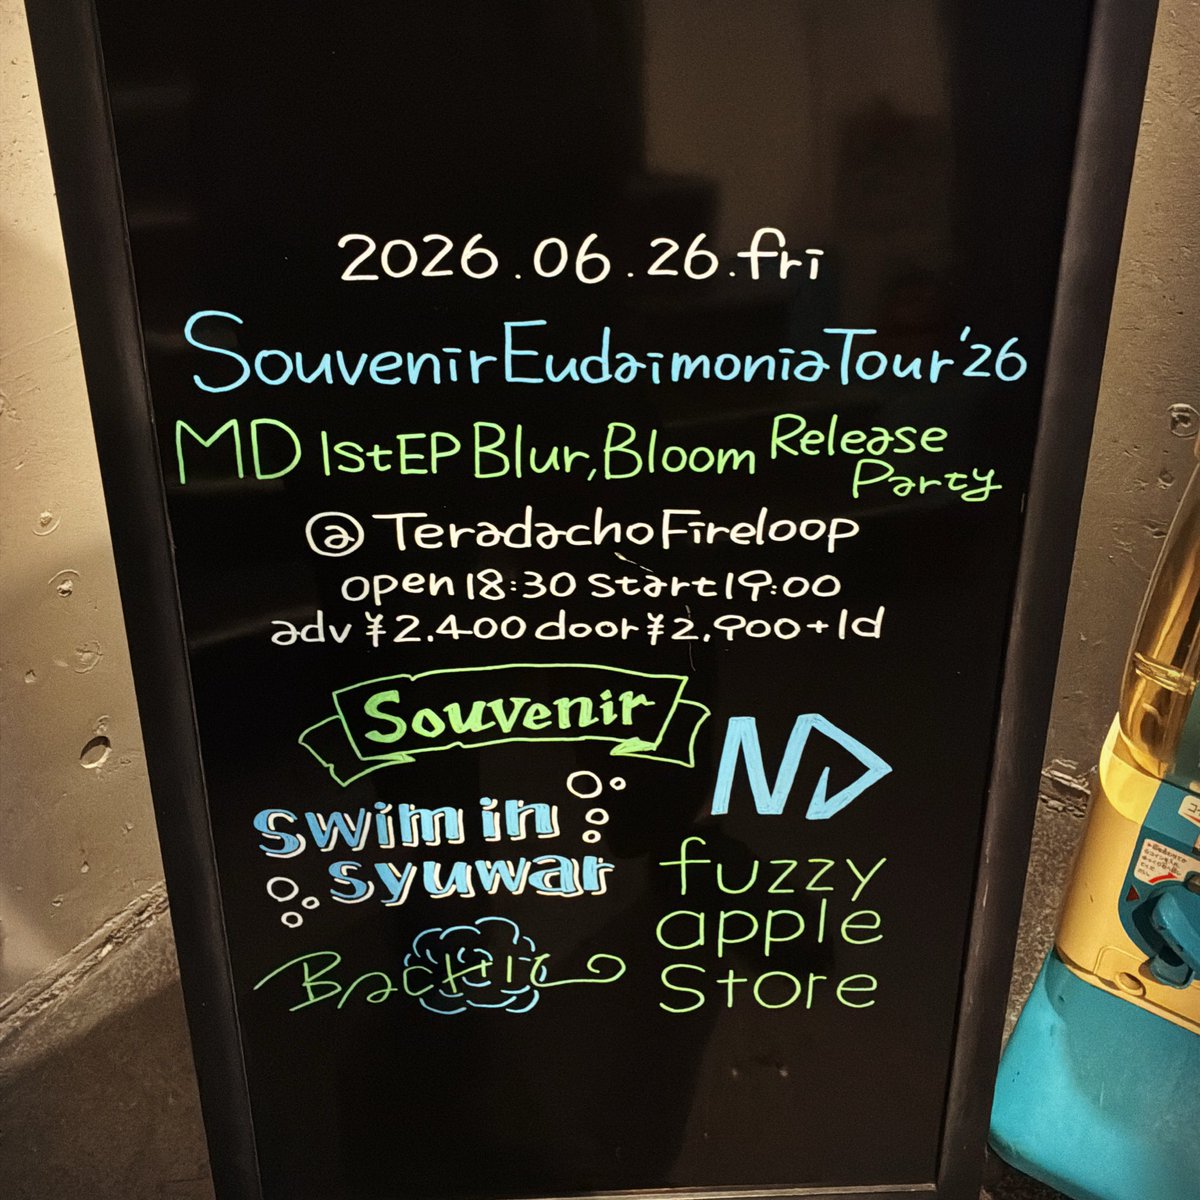 2026.06.26.fri
Souvenir Eudaimonia Tour '26
MD 1st EP Blur, Bloom Release Party
@ Teradacho Fireloop
open 18:30 start 19:00
adv ¥2,400 door ¥2,900+1d
Souvenir
MD
swim in
syuwar
fuzzy
apple
store